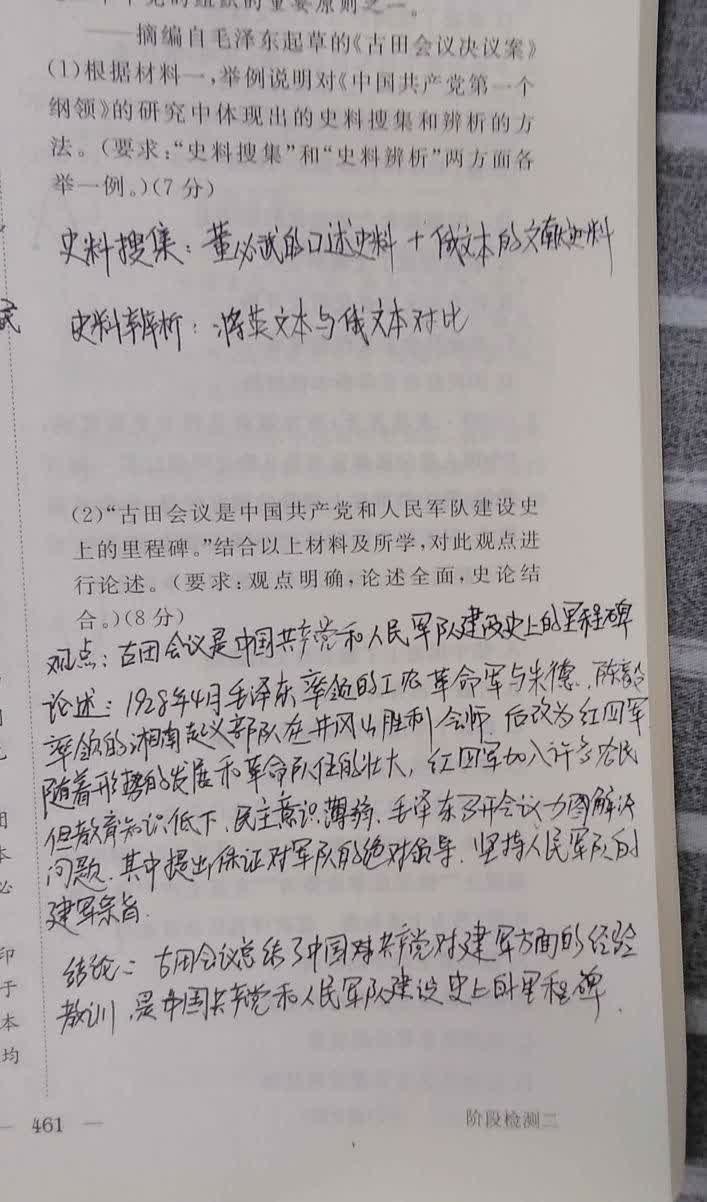 个党的组织的重要原则之一。
——摘编自毛泽东起草的《古田会议决议案》
(1)根据材料一,举例说明对《中国共产党第一个
纲领》的研究中体现出的史料搜集和辨析的方
法。(要求:“史料搜集”和“史料辨析”两方面各
举一例。)(7分)
史料搜集:董必武的口述史料+俄文本的文献史料
史料辨析:将英文本与俄文本对比
(2)“古田会议是中国共产党和人民军队建设史
上的里程碑。”结合以上材料及所学,对此观点进
行论述。(要求:观点明确,论述全面,史论结
合。)(8分)
观点:古田会议是中国共产党和人民军队建设史上的里程碑
论述:1928年4月毛泽东率领的工农革命军与朱德、陈毅
率领的湘南起义部队在井冈山胜利会师,后改为红四军
随着形势的发展和革命队伍的壮大,红四军加入许多农民
但教育知识低下、民主意识薄弱,毛泽东召开会议力图解决
问题.其中提出保证对军队的绝对领导.坚持人民军队的
建军宗旨.
结论:古田会议总结了中国共产党对建军方面的经验
教训,是中国共产党和人民军队建设史上的里程碑.
武
本
必
印
于
本
均
461
阶段检测二